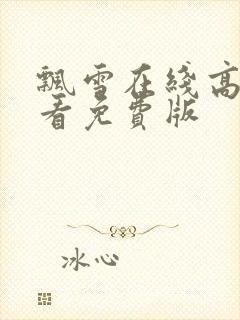 飘雪在线高
看免费版
冰心